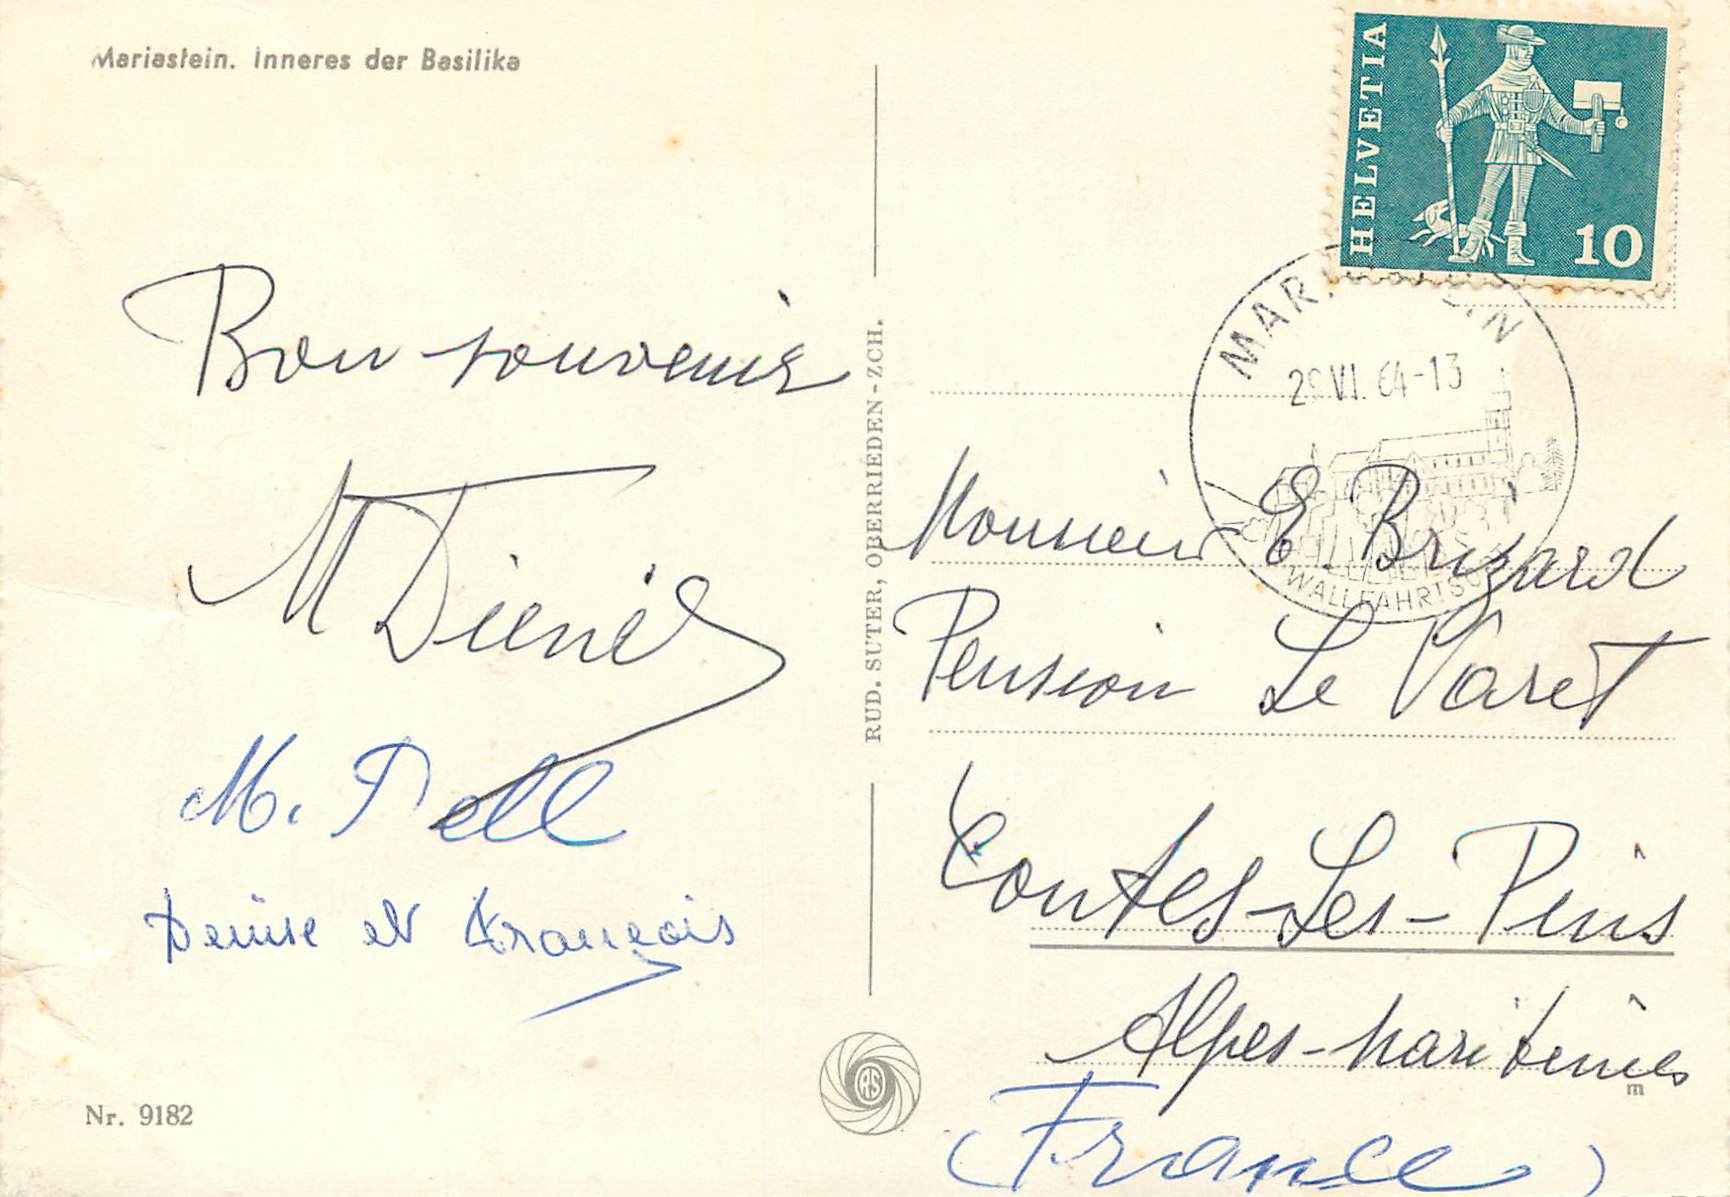 Mariastein. Inneres der Basilika
HELVETIA
10
29.VI.64-13
WALLFAHRTSO
Bon souvenir
M. Tell
Denise et François
Nr. 9182
RUD. SUTER, OBERRIEDEN-ZCH.
RS
Monsieur E. Brizard
Pension Le Varet
Contes-Les-Pins
Alpes-Maritimes
m
(France)